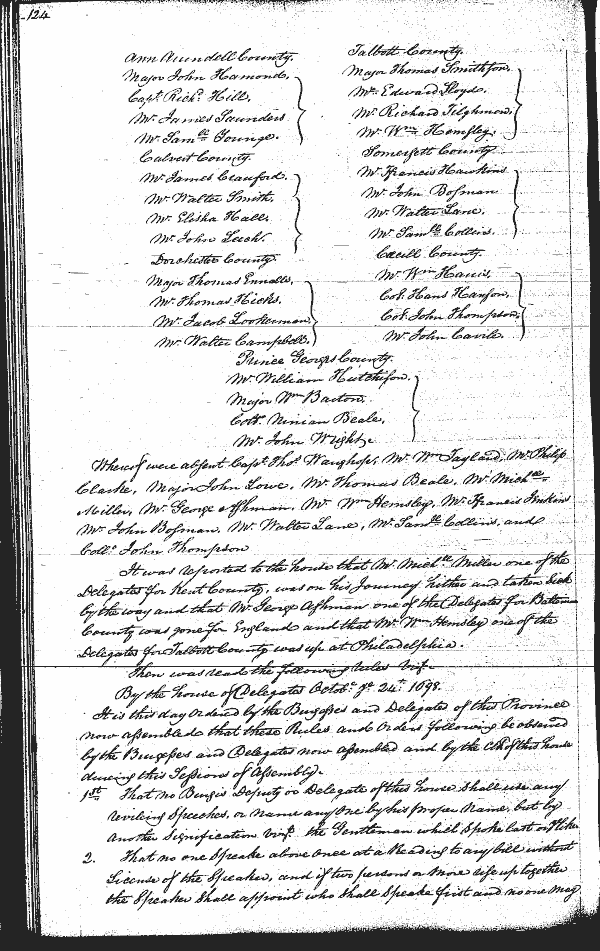 124
Ann Arundell County.
Major John Hamond.
Capt. Richd. Hill.
Mr. James Saunders
Mr. Samll. Younge.
Calvert County.
Mr. James Cranford.
Mr. Walter Smith.
Mr. Elisha Hall.
Mr. John Leech.
Dorchester County
Major Thomas Ennalls.
Mr. Thomas Hicks.
Mr. Jacob Lookerman.
Mr. Walter Campbell.
Talbott County.
Major Thomas Smithson.
Mr. Edward Lloyd.
Mr. Richard Tilghman.
Mr. Wm. Hemsley.
Somersett County
Mr. Francis Hawkins
Mr. John Bosman
Mr. Walter Lane.
Mr. Samll. Collins.
Cecill County.
Mr. Wm Harris.
Col. Hans Hanson.
Col. John Thompson.
Mr. John Cavile.
Prince Georges County.
Mr. William Hutchison.
Major Wm Barton.
Coll. Ninian Beale.
Mr. John Wight.
Whereof were absent Capt. Thos. Waughop, Mr. Wm Tayland, Mr. Philip
Clarke, Major John Lowe, Mr. Thomas Beale, Mr. Michll.
Miller, Mr. George Ashman, Mr. Wm Hemsley, Mr. Francis
Mr. John Bosman, Mr. Walter Lane, Mr. Samll Collins, and
Coll. John Thompson
It was reported to the house that Mr. Michll Miller one of the
Delegates for Kent County, was on his Journey hither and taken Sick
by the way and that Mr. George Ashman one of the Delegates for Baltemor
County was gone for England and that Mr. Wm Hemsley one of the
Delegates for Talbott County was up at Philadelphia.
Then was read the following rules vizt.
By the house of Delegates Octobr. ye 24th. 1698.
It is this day Ordered by the Burgesses and Delegates of this Province
now assembled that these Rules and Orders following be observed
by the Burgesses and Delegates now assembled and by the Clk of this house
during this Sessions of Assembly.
1st. That no Burgis Deputy or Delegate of this house shall use any
reviling Speeches, or name any One by his proper Name, but by
another Signification vizt. the Gentleman which Spoke last or the like
2. That no one Speake above once at a Reading to any bill without
License of the Speaker, and if two persons or more rise up together
the Speaker shall appoint who shall Speake first and no one may